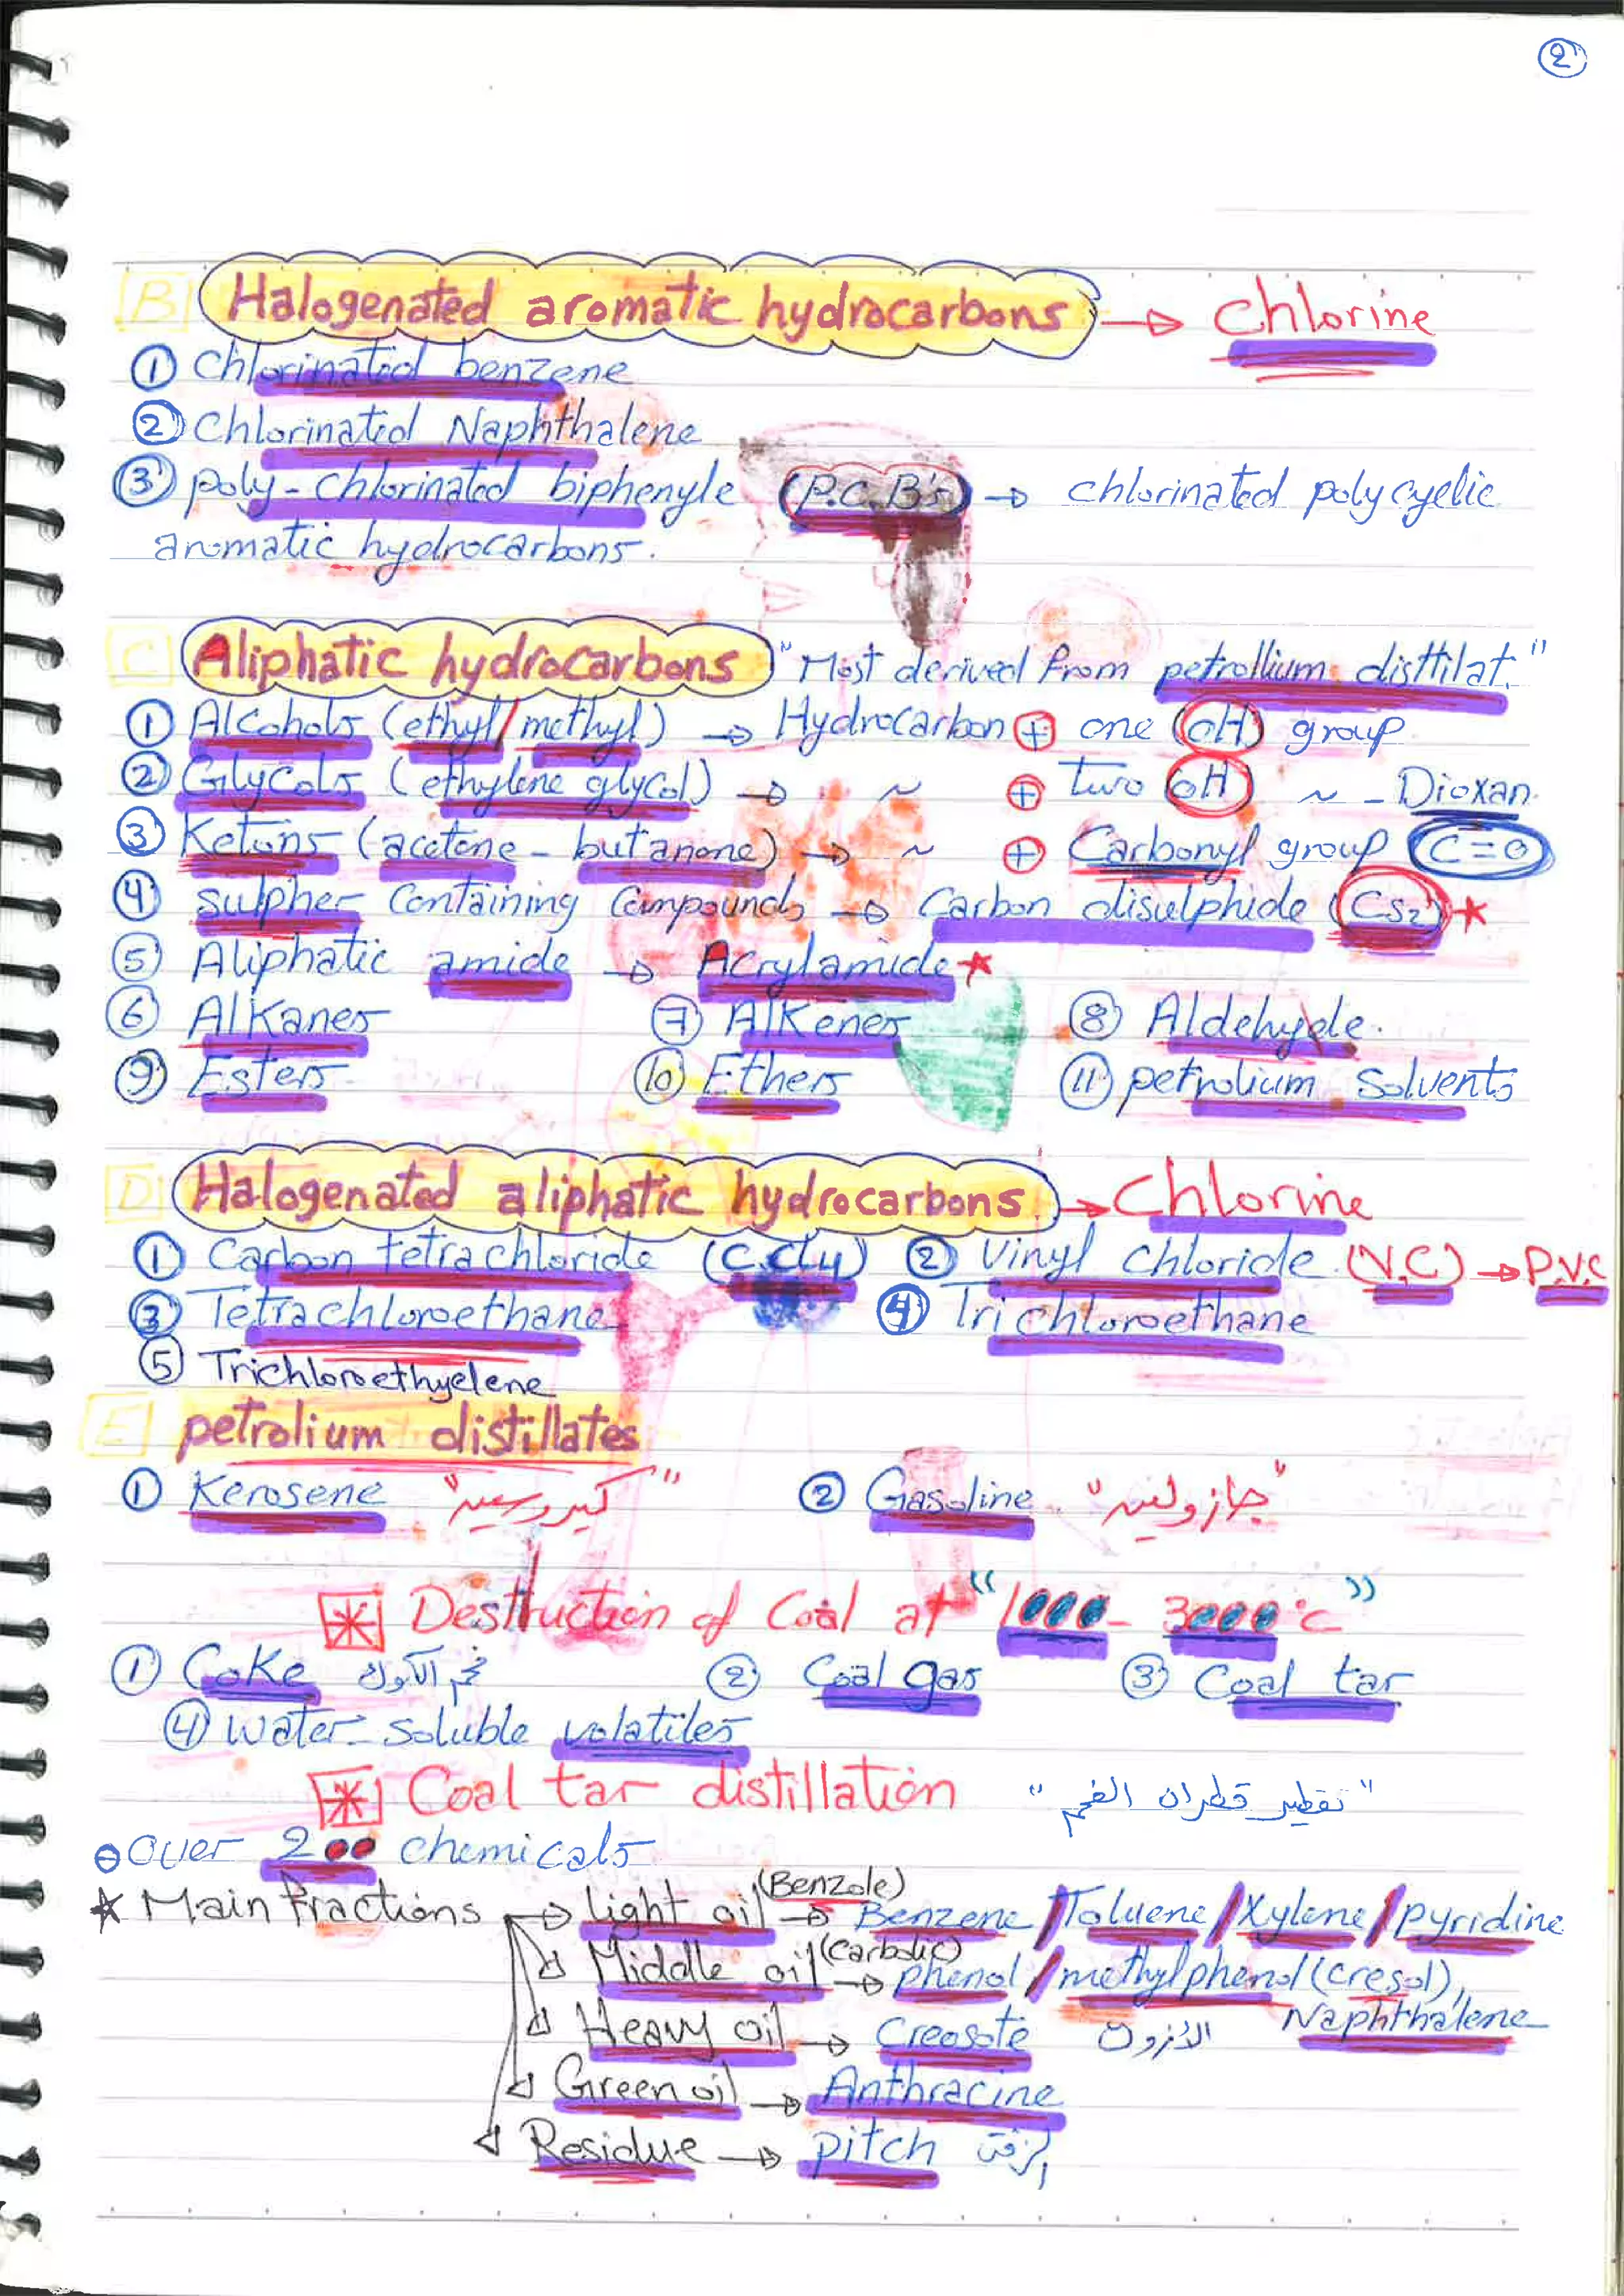 2
B Halogenated aromatic hydrocarbons → chlorine
① Chlorinated benzene
② Chlorinated Naphthalene
③ poly-chlorinated biphenyle (P.C.B's) → chlorinated polycyclic
aromatic hydrocarbons.
C Aliphatic hydrocarbons "Most derived from petrollium disttilat."
① Alcohols (ethyl/methyl) → Hydrocarbon + one (OH) group
② Glycols (ethylene glycol) → ~ + two (OH) ~ - Dioxan.
③ Ketons (acetone - butanone) → ~ + Carbonyl group (C=O)
④ Sulpher Containing Compounds → Carbon disulphide (CS2) ★
⑤ Aliphatic amide → Acrylamide ★
⑥ Alkanes ⑦ Alkenes ⑧ Aldehyde.
⑨ Esters ⑩ Ethers ⑪ petrolium solvents
D Halogenated aliphatic hydrocarbons. → Chlorine
① Carbon tetrachloride (C.Cl4) ② Vinyl chloride. (V.C) → P.V.C
③ Tetrachloroethane ④ Trichloroethane
⑤ Trichloroethyelene
E petrolium distillates
① Kerosene "كيروسين" ② Gasoline "جازولين"
* Destruction of Coal at "1000 - 3000 °C"
① Coke فحم الكوك ② Coal gas ③ Coal tar
④ Water-soluble volatiles
* Coal tar distillation "تقطير قطران الفحم"
Over 200 chemicals
★ Main fractions → Light oil (Benzole) → Benzene / Toluene / Xylene / pyridine
Middle oil (Carbolic) → phenol / methylphenol (cresol),
Naphthalene
Heavy oil → Creosote
Green oil → Anthracine
Residue → pitch الزفت